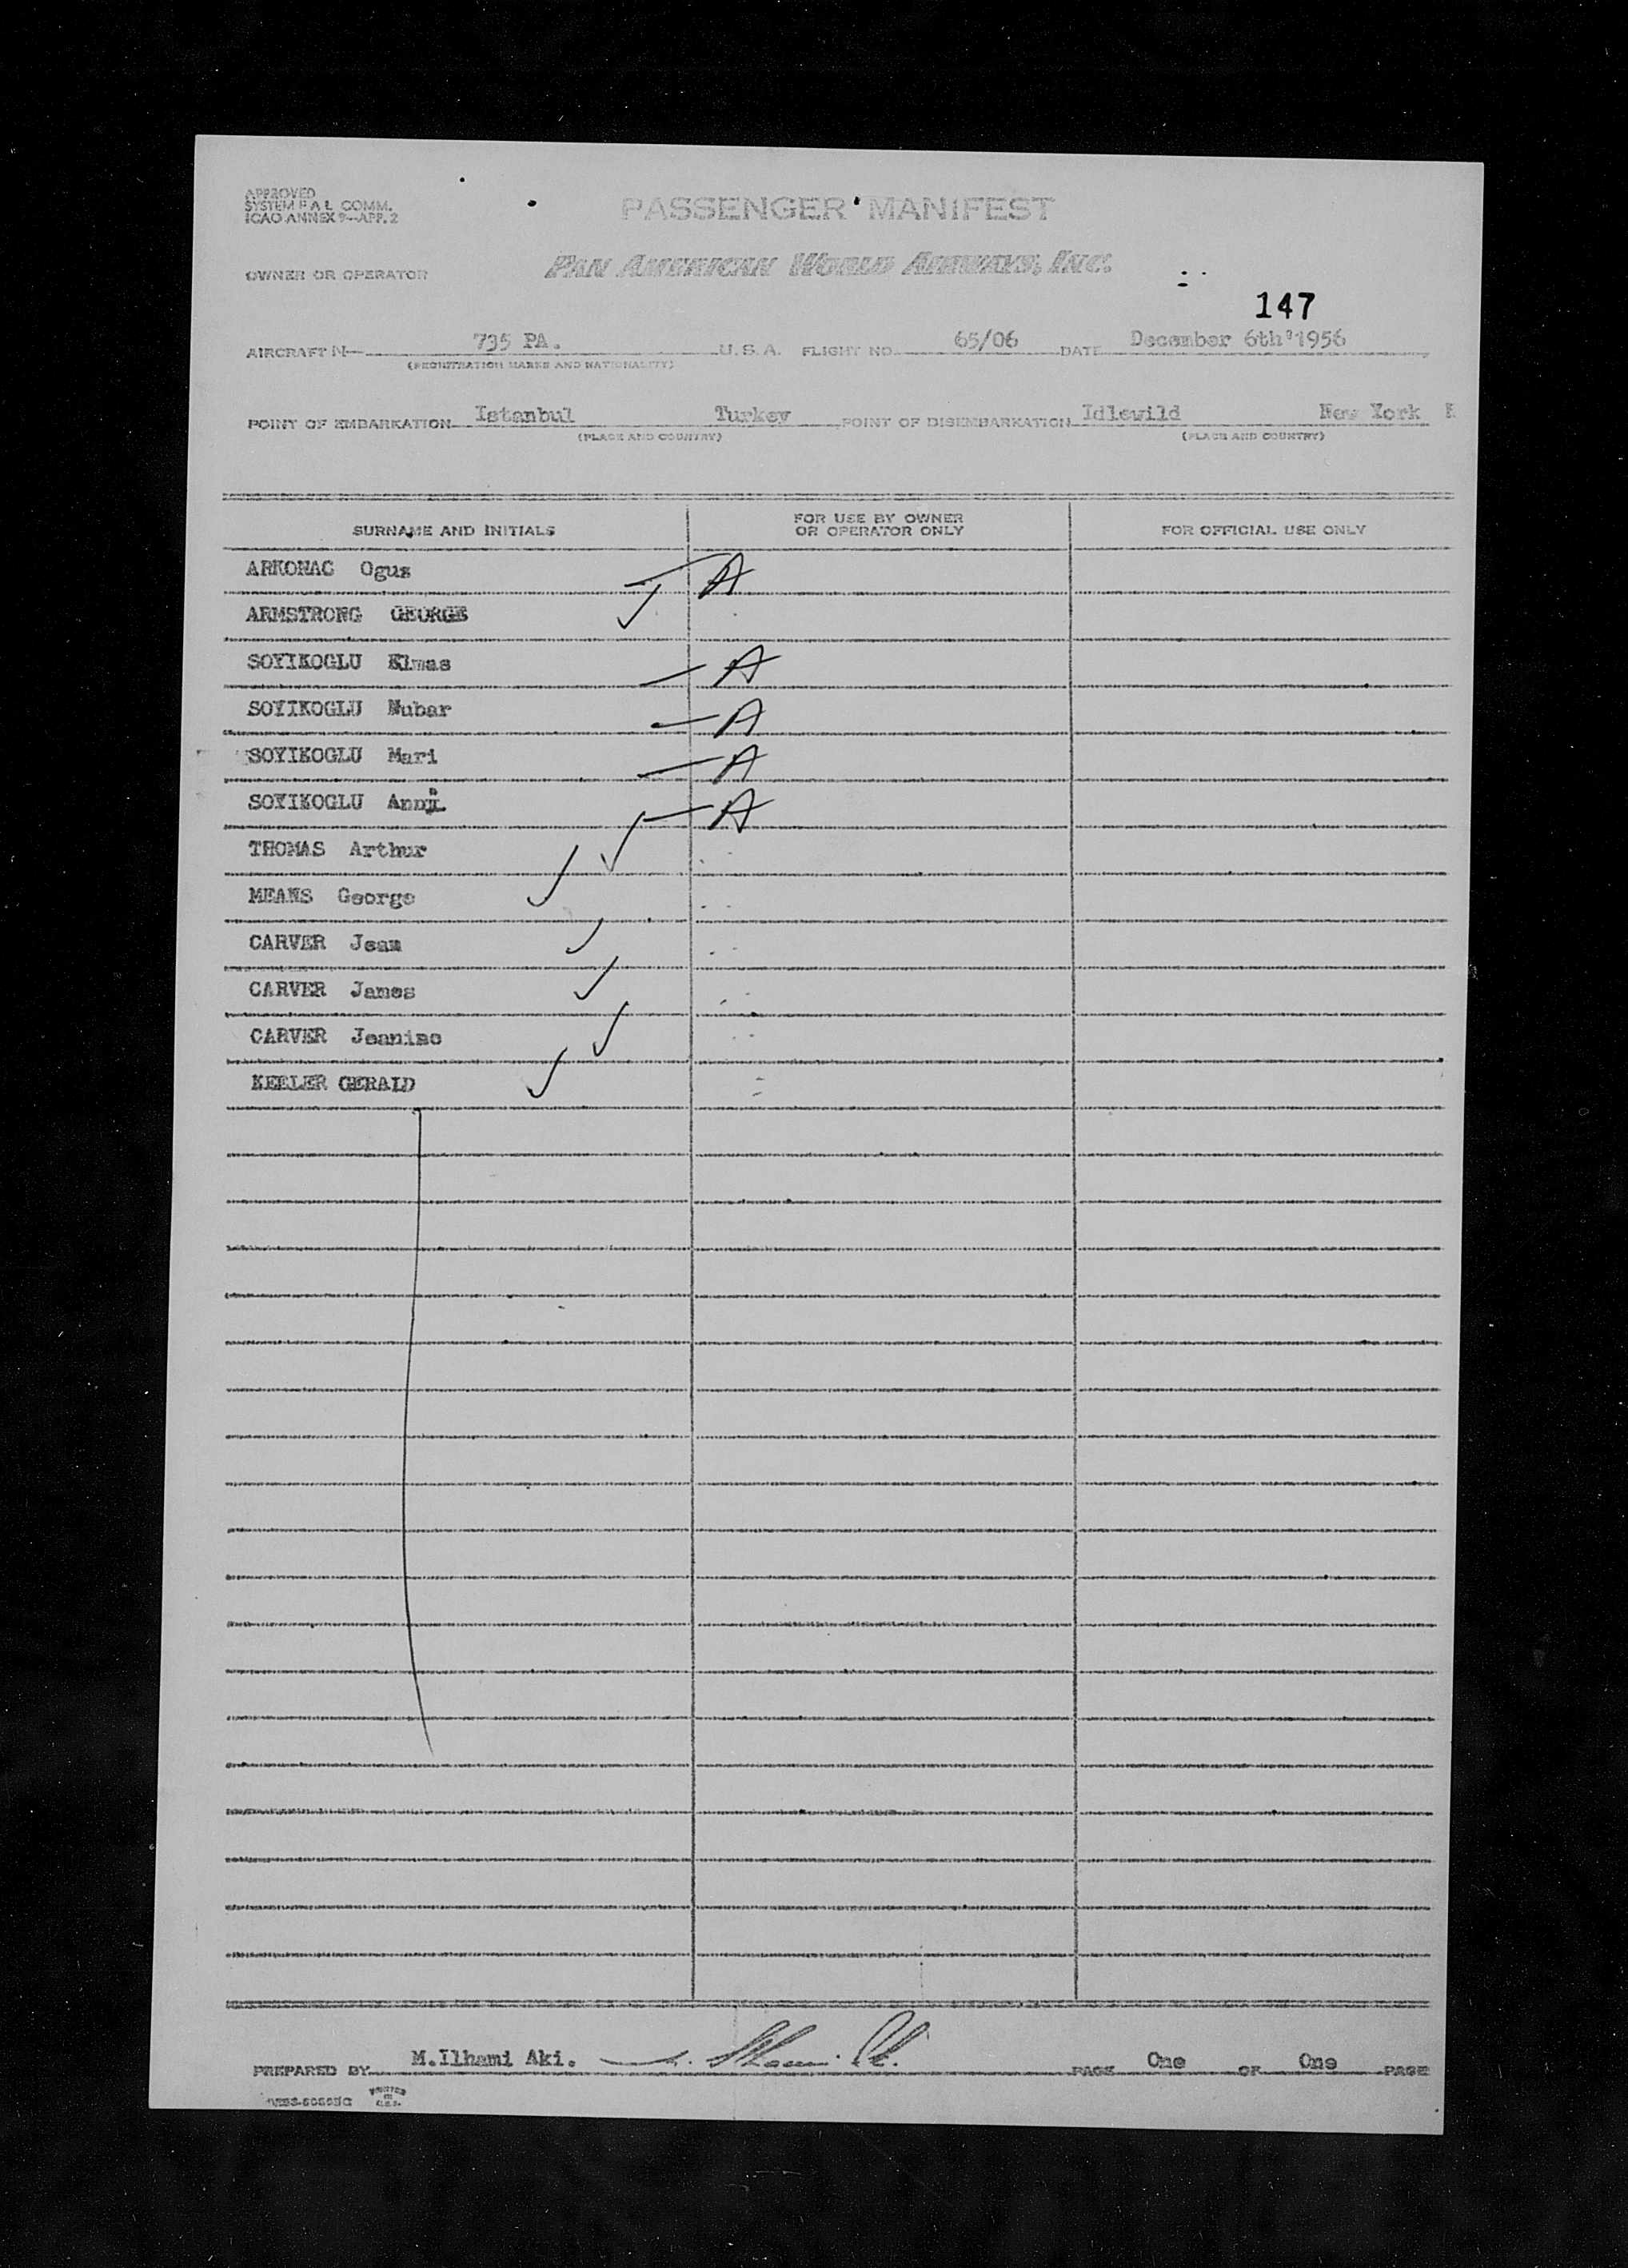 APPROVED
SYSTEM F A L COMM.
ICAO ANNEX 9—APP. 2
PASSENGER MANIFEST
OWNER OR OPERATOR PAN AMERICAN WORLD AIRWAYS, INC.
147
AIRCRAFT N— 735 PA. U. S. A. FLIGHT NO. 65/06 DATE December 6th'1956
(REGISTRATION MARKS AND NATIONALITY)
POINT OF EMBARKATION Istanbul Turkey POINT OF DISEMBARKATION Idlewild New York
(PLACE AND COUNTRY) (PLACE AND COUNTRY)
SURNAME AND INITIALS FOR USE BY OWNER OR OPERATOR ONLY FOR OFFICIAL USE ONLY
ARKONAC Oguz A
ARMSTRONG GEORGE
SOYIKOGLU Elmas A
SOYIKOGLU Nubar A
SOYIKOGLU Mari A
SOYIKOGLU A
THOMAS Arthur
MEANS George
CARVER Jean
CARVER James
CARVER Jeanine
KEELER GERALD
PREPARED BY M.Ilhami Aki. PAGE One OF One PAGE
PRINTED
IN
U.S.A.